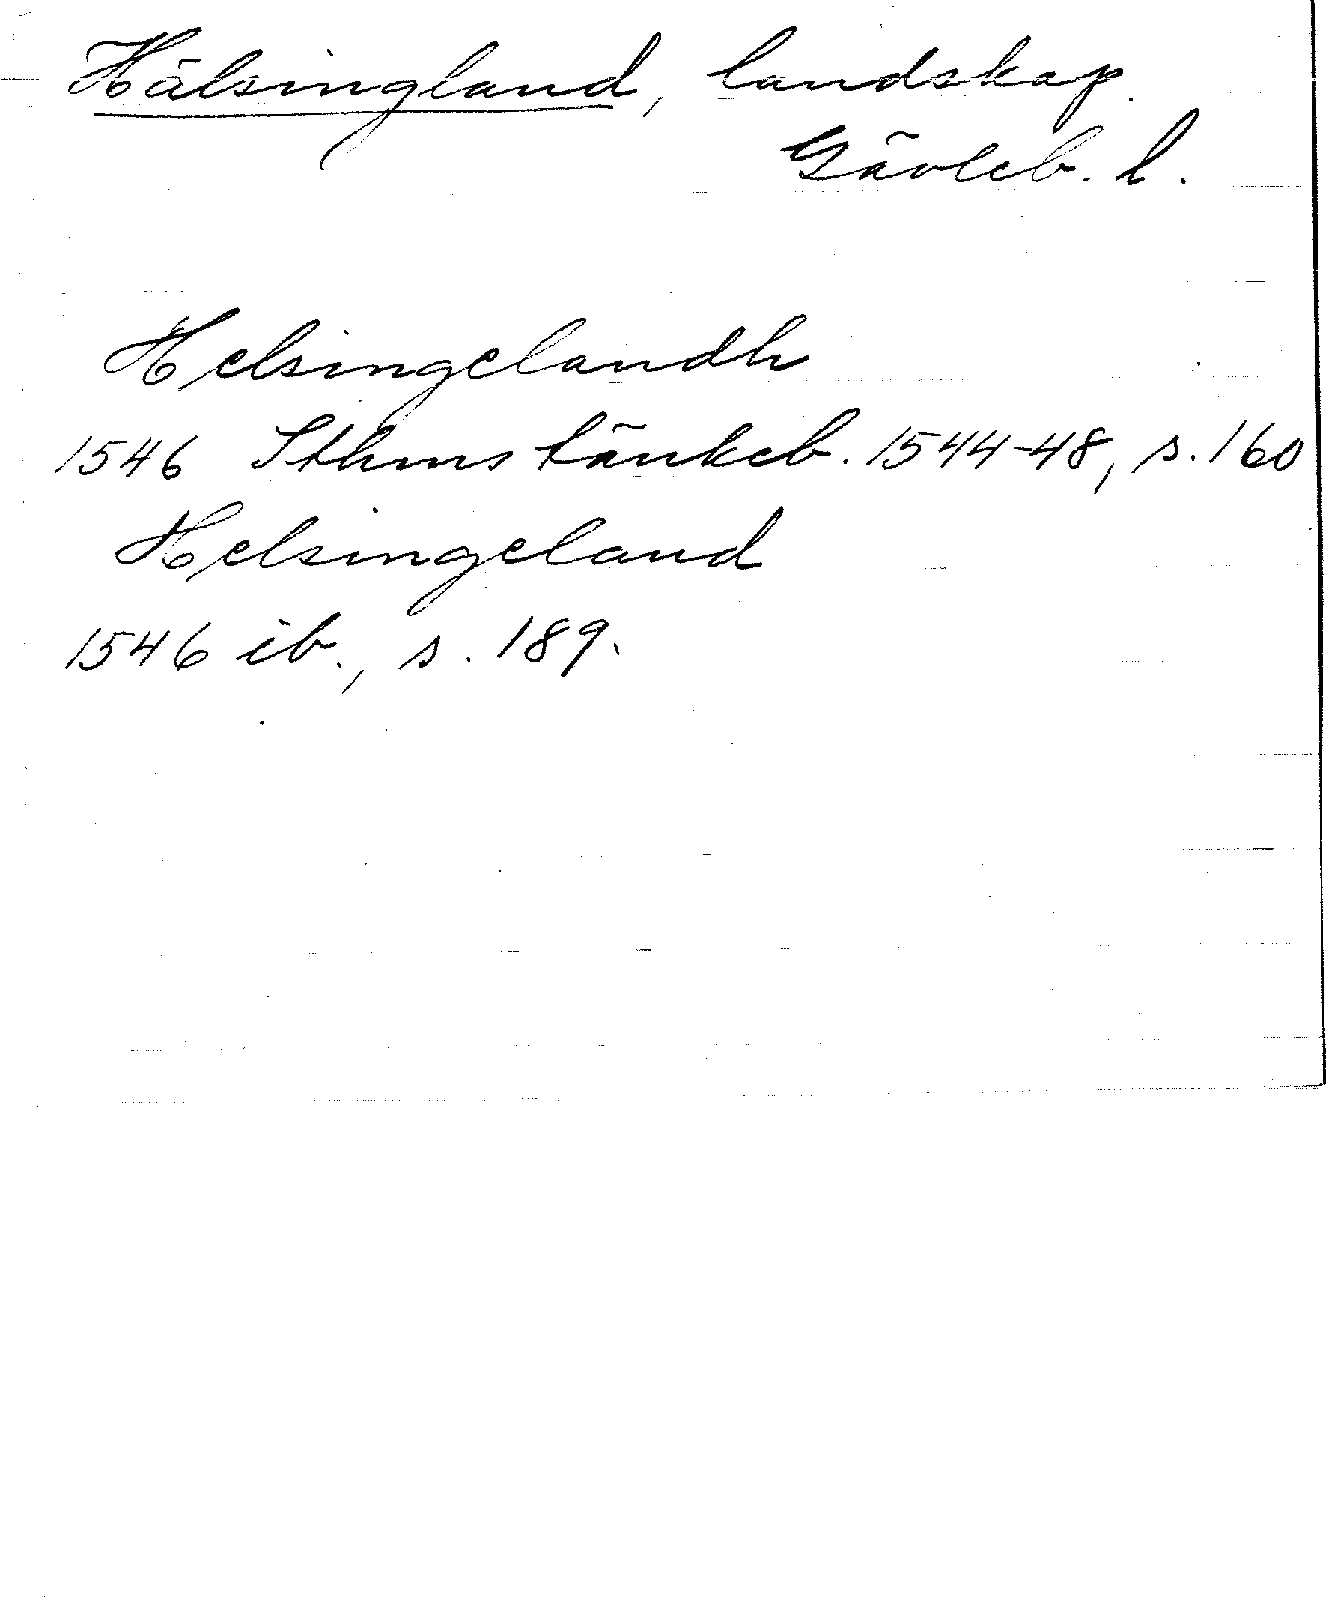 Hälsingland, landskap.
Gävleb. l.
Helsingelandh
1546 Sthms tänkeb. 1544-48, s. 160
Helsingeland
1546 ib., s. 189.